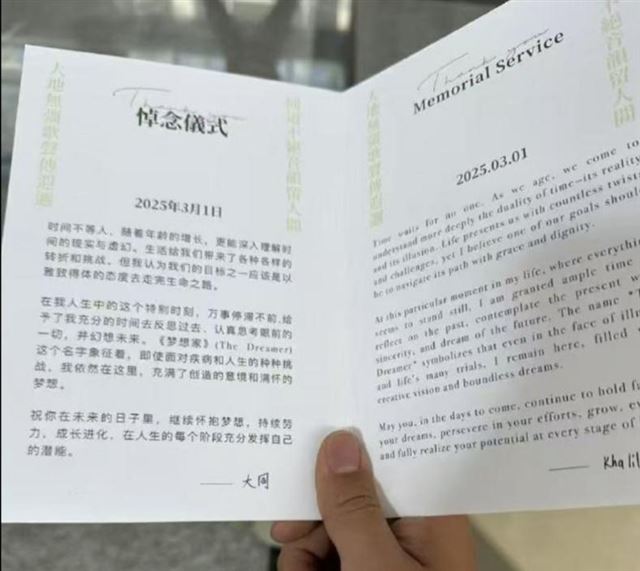 Thank you
悼念儀式
2025年3月1日
时间不等人，随着年龄的增长，更能深入理解时
间的现实与虚幻。生活给我们带来了各种各样的
转折和挑战，但我认为我们的目标之一应该是以
雅致得体的态度去走完生命之路。
在我人生中的这个特别时刻，万事停滞不前,给
予了我充分的时间去反思过去、认真思考眼前的
一切，并幻想未来。《梦想家》(The Dreamer)
这个名字象征着，即使面对疾病和人生的种种挑
战，我依然在这里，充满了创造的意境和满怀的
梦想。
祝你在未来的日子里，继续怀抱梦想，持续努
力，成长进化，在人生的每个阶段充分发挥自己
的潜能。
大同
不絕音韻留人間
Thank you
Memorial Service
不絕音韻留人間
2025.03.01
Time waits for no one. As we age, we come to
understand more deeply the duality of time—its reality
and its illusion. Life presents us with countless twists
and challenges, yet I believe one of our goals should
be to navigate its path with grace and dignity.
At this particular moment in my life, where everything
seems to stand still, I am granted ample time
reflect on the past, contemplate the present
sincerity, and dream of the future. The name "T
Dreamer" symbolizes that even in the face of illn
and life's many trials, I remain here, filled
creative vision and boundless dreams.
May you, in the days to come, continue to hold fa
your dreams, persevere in your efforts, grow, ev
and fully realize your potential at every stage of
Khalil